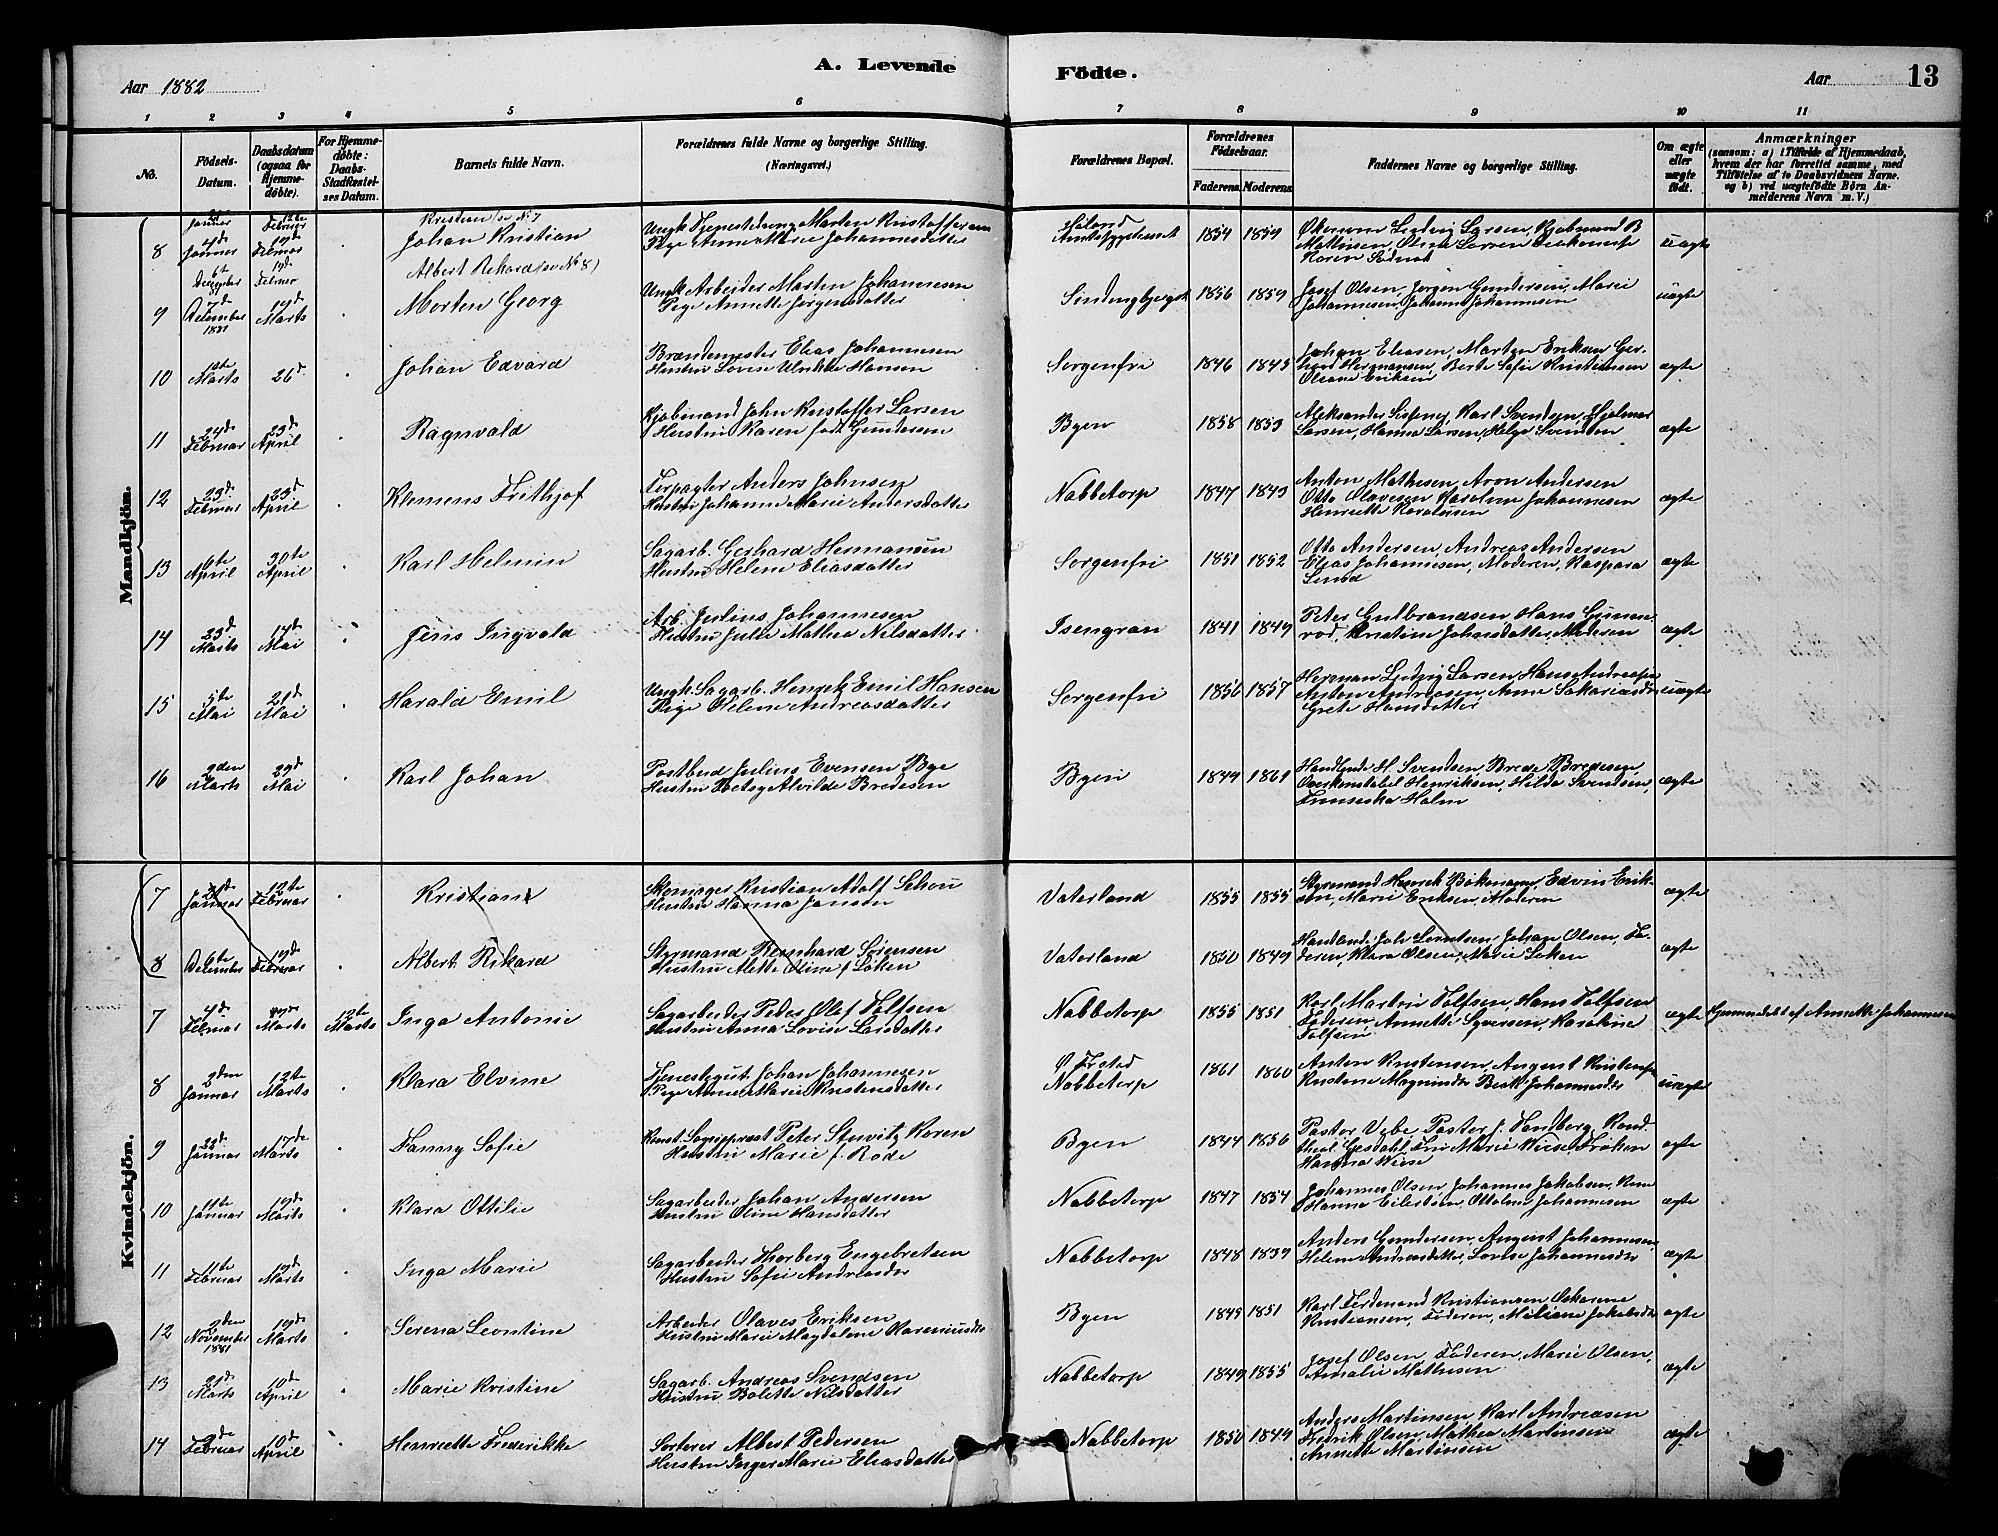 A. Levende Födte.
Aar 1882
Aar
13
1 2 3 4 5 6 7 8 9 10 11
No.
Födsels-Datum.
Daabsdatum (ogsaa for Hjemmedöbte).
For Hjemmedöbte: Daabs-Stadfæstelses Datum.
Barnets fulde Navn.
Forældrenes fulde Navne og borgerlige Stilling. (Næringsvei.)
Forældrenes Bopæl.
Forældrenes Födselsaar.
Faderens. Moderens.
Faddernes Navne og borgerlige Stilling.
Om ægte eller uægte födt.
Anmærkninger
(saasom: a) i Tilfælde af Hjemmedaab, hvem der har forrettet samme, med Tilföielse af to Daabsvidners Navne. og b) ved uægtefödte Börn Anmelderens Navn m. V.)
Mandkjön.
8 4de Januar 19de Februar Johan Kristian
Ungk. Tjenestedreng Marten Kristoffersen
Pige Anne Marie Johannesdatter
1854 1859
uægte
Albert Rikard (se No 8)
9 7de December 1881 19de Marts Morten Georg
Ungk. Arbeider Martin Johannesen
Pige Annette Jørgensdatter
1856 1859
Josef Olsen, Jørgen Gundersen, Marie
Johannesen, Johanne Johannesen
uægte
10 Marts 26d Johan Edvard
Brændemester Elias Johannesen
Hustru Lovise Ulrikke Hansen
Sorgenfri 1846 1845
Johan Eliasen, Marten Eriksen Ger-
hard Hermansen, Berte Sofie Kristiansen
Oliane Eriksen
ægte
11 24d Februar 23d April Ragnvald
Kjøbmand John Kristoffer Larsen
Hustru Karen født Gundersen
Byen 1858 1853
Karl Svendsen, Hjalmar
Larsen, Hanna Larsen, Helga Svendsen
ægte
12 23d Februar 23d April Klemens Frithjof
Forpagter Anders Johnsen
Hustru Johanne Marie Andersdatter
Nabbetorp 1847 1843
Anton Mathesen, Aron Andersen
Otto Olavesen Karoline Johannesen
Henriette
ægte
13 6te April 30te April Karl Helmin
Sagarb. Gerhard Hermansen
Hustru Helene Eliasdatter
Sorgenfri 1851 1852
Otto Andersen, Andreas Andersen
Elias Johannesen, Moderen, Kaspara
Lund
ægte
14 23d Marts 14d Mai Jens Ingvald
Arb. Julius Johannesen
Hustru Julie Mathea Nilsdatter
Isengran 1841 1849
Peter Gulbrandsen, Hans Gunne-
rød, Kristine Johansdatter, Moderen
ægte
15 5te Mai 21d Mai Harald Emil
Ungk. Sagarb. Henrik Emil Hansen
Pige Helene Andreasdatter
Sorgenfri 1856 1857
Herman Ludvig Larsen, Hans Andreasen
Anton Andreasen, Anne Sakariasdr
Grete Hansdatter
uægte
16 2den Marts 29d Mai Karl Johan
Postbud Julius Evensen Bye
Hustru Betsy Alvilde Bredesen
Byen 1849 1861
Handlende H. Svendsen, Brede Bredesen,
Overkonstabel Henriksen, Hilda Svendsen,
Fransiska Holm
ægte
Kvindekjön.
7 Januar 12te Februar Kristian
Skomager Kristian Adolf Schou
Hustru Hanna Jansen
Vaterland 1855 1855
Styrmand Henrik Bökmann, Edvin Erik-
sen, Marie Eriksen, Moderen
ægte
8 6te December 19de Februar Albert Rikard
Styrmand Bernhard Sørensen
Hustru Alette Oline f. Løken
Vaterland 1850 1849
Handlende Joh. Lorentsen, Johan Olsen, Fa-
deren, Klara Olsen, Marie Løken
ægte
7 4de Februar Marts 12te Marts Inga Antonie
Sagarbeider Peder Olaf Tolfsen
Hustru Anna Lovise Larsdatter
Nabbetorp 1855 1851
Karl Martin Tolfsen, Hans Tolfsen
Faderen, Annette Syversen, Karoline
Tolfsen
ægte
Hjemmedøbt af Annette Johannesen
8 2den Januar 12te Marts Klara Elvine
Tjenestegut Johan Johannesen
Pige Anne Marie Kristensdatter
Nabbetorp 1861 1860
Anton Kristensen, August Kristensen
uægte
9 22d Januar 17de Marts Fanny Sofie
Konst. Sogneprest Peter Stuwitz Koren
Hustru Marie f. Rode
Byen 1844 1856
Pastor Vebe, Pastor J. Sandberg, Kand.
theol. Gesdahl, Fru Marie Wiese, Frøken
Hanna Wiese
ægte
10 11te Januar 19de Marts Klara Ottilie
Sagarbeider Johan Andersen
Hustru Oline Hansdatter
Nabbetorp 1847 1854
Johannes Olsen, Johannes Jakobsen,
Hanna Eilertsen, Ottoline Johannesen
ægte
11 11te Februar 19de Marts Inga Marie
Sagarbeider Horberg Engebretsen
Hustru Sofie Andreasdr
Nabbetorp 1848 1839
Anders Gundersen, August Johannesen,
Helene Andreasdatter, Lovise Johannesdr
ægte
12 2den November 1881 19de Marts Serena Leontine
Arbeider Olaves Eriksen
Hustru Marie Magdalene
Byen 1845 1851
Karl Ferdinand Kristiansen Oskarine
Kristiansen, Faderen, Miliane Jakobsdr
ægte
13 21d Marts 10d April Marie Kristine
Sagarb. Andreas Svendsen
Hustru Bolette Nilsdatter
Nabbetorp 1849 1855
Josef Olsen, Faderen, Marie Olsen,
Amalie Mathesen
ægte
14 2de Februar 10d April Henriette Frederikke
Sorterer Albert Pedersen
Hustru Inger Marie Eliasdatter
Nabbetorp 1850 1849
Anders Martinsen, Karl Andreasen
Fredrik Olsen, Mathea Martinsen
Annette Martinsen
ægte